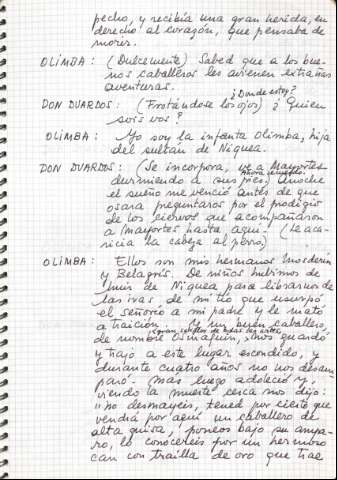 pecho, y recibía una gran herida, en
derecho al corazón, que pensaba de
morir.
OLIMBA: (Dulcemente) Sabed que a los bue-
nos caballeros les avienen extrañas
aventuras.
¿Donde estoy?
DON DUARDOS: (Frotándose los ojos) ¿Quien
sois vos?
OLIMBA: Yo soy la infanta Olimba, hija
del sultán de Niquea.
DON DUARDOS: (Se incorpora, ve a Mayortes
durmiendo a sus pies) Anoche
el sueño me venció antes de que
osara preguntaros por el prodigio
de los ciervos que acompañaron
a Mayortes hasta aquí. (Le aca-
ricia la cabeza al perro)
OLIMBA: Ellos son mis hermanos Mosderín
y Belagrís. De niños hubimos de
huir de Niquea para librarnos de
las iras de mi tío que usurpó
el señorío a mi padre y le mató
a traición. Y un buen caballero,
de nombre Osmaquín, nos guardó
y trajo a este lugar escondido, y
durante cuatro años no nos desam
paró. Mas luego adoleció y,
viendo la muerte cerca nos dijo:
"no desmayéis, tened por cierto que
vendrá por aquí un caballero de
alta guisa, poneos bajo su ampa-
ro, lo conoceréis por un hermoso
can con traílla de oro que trae